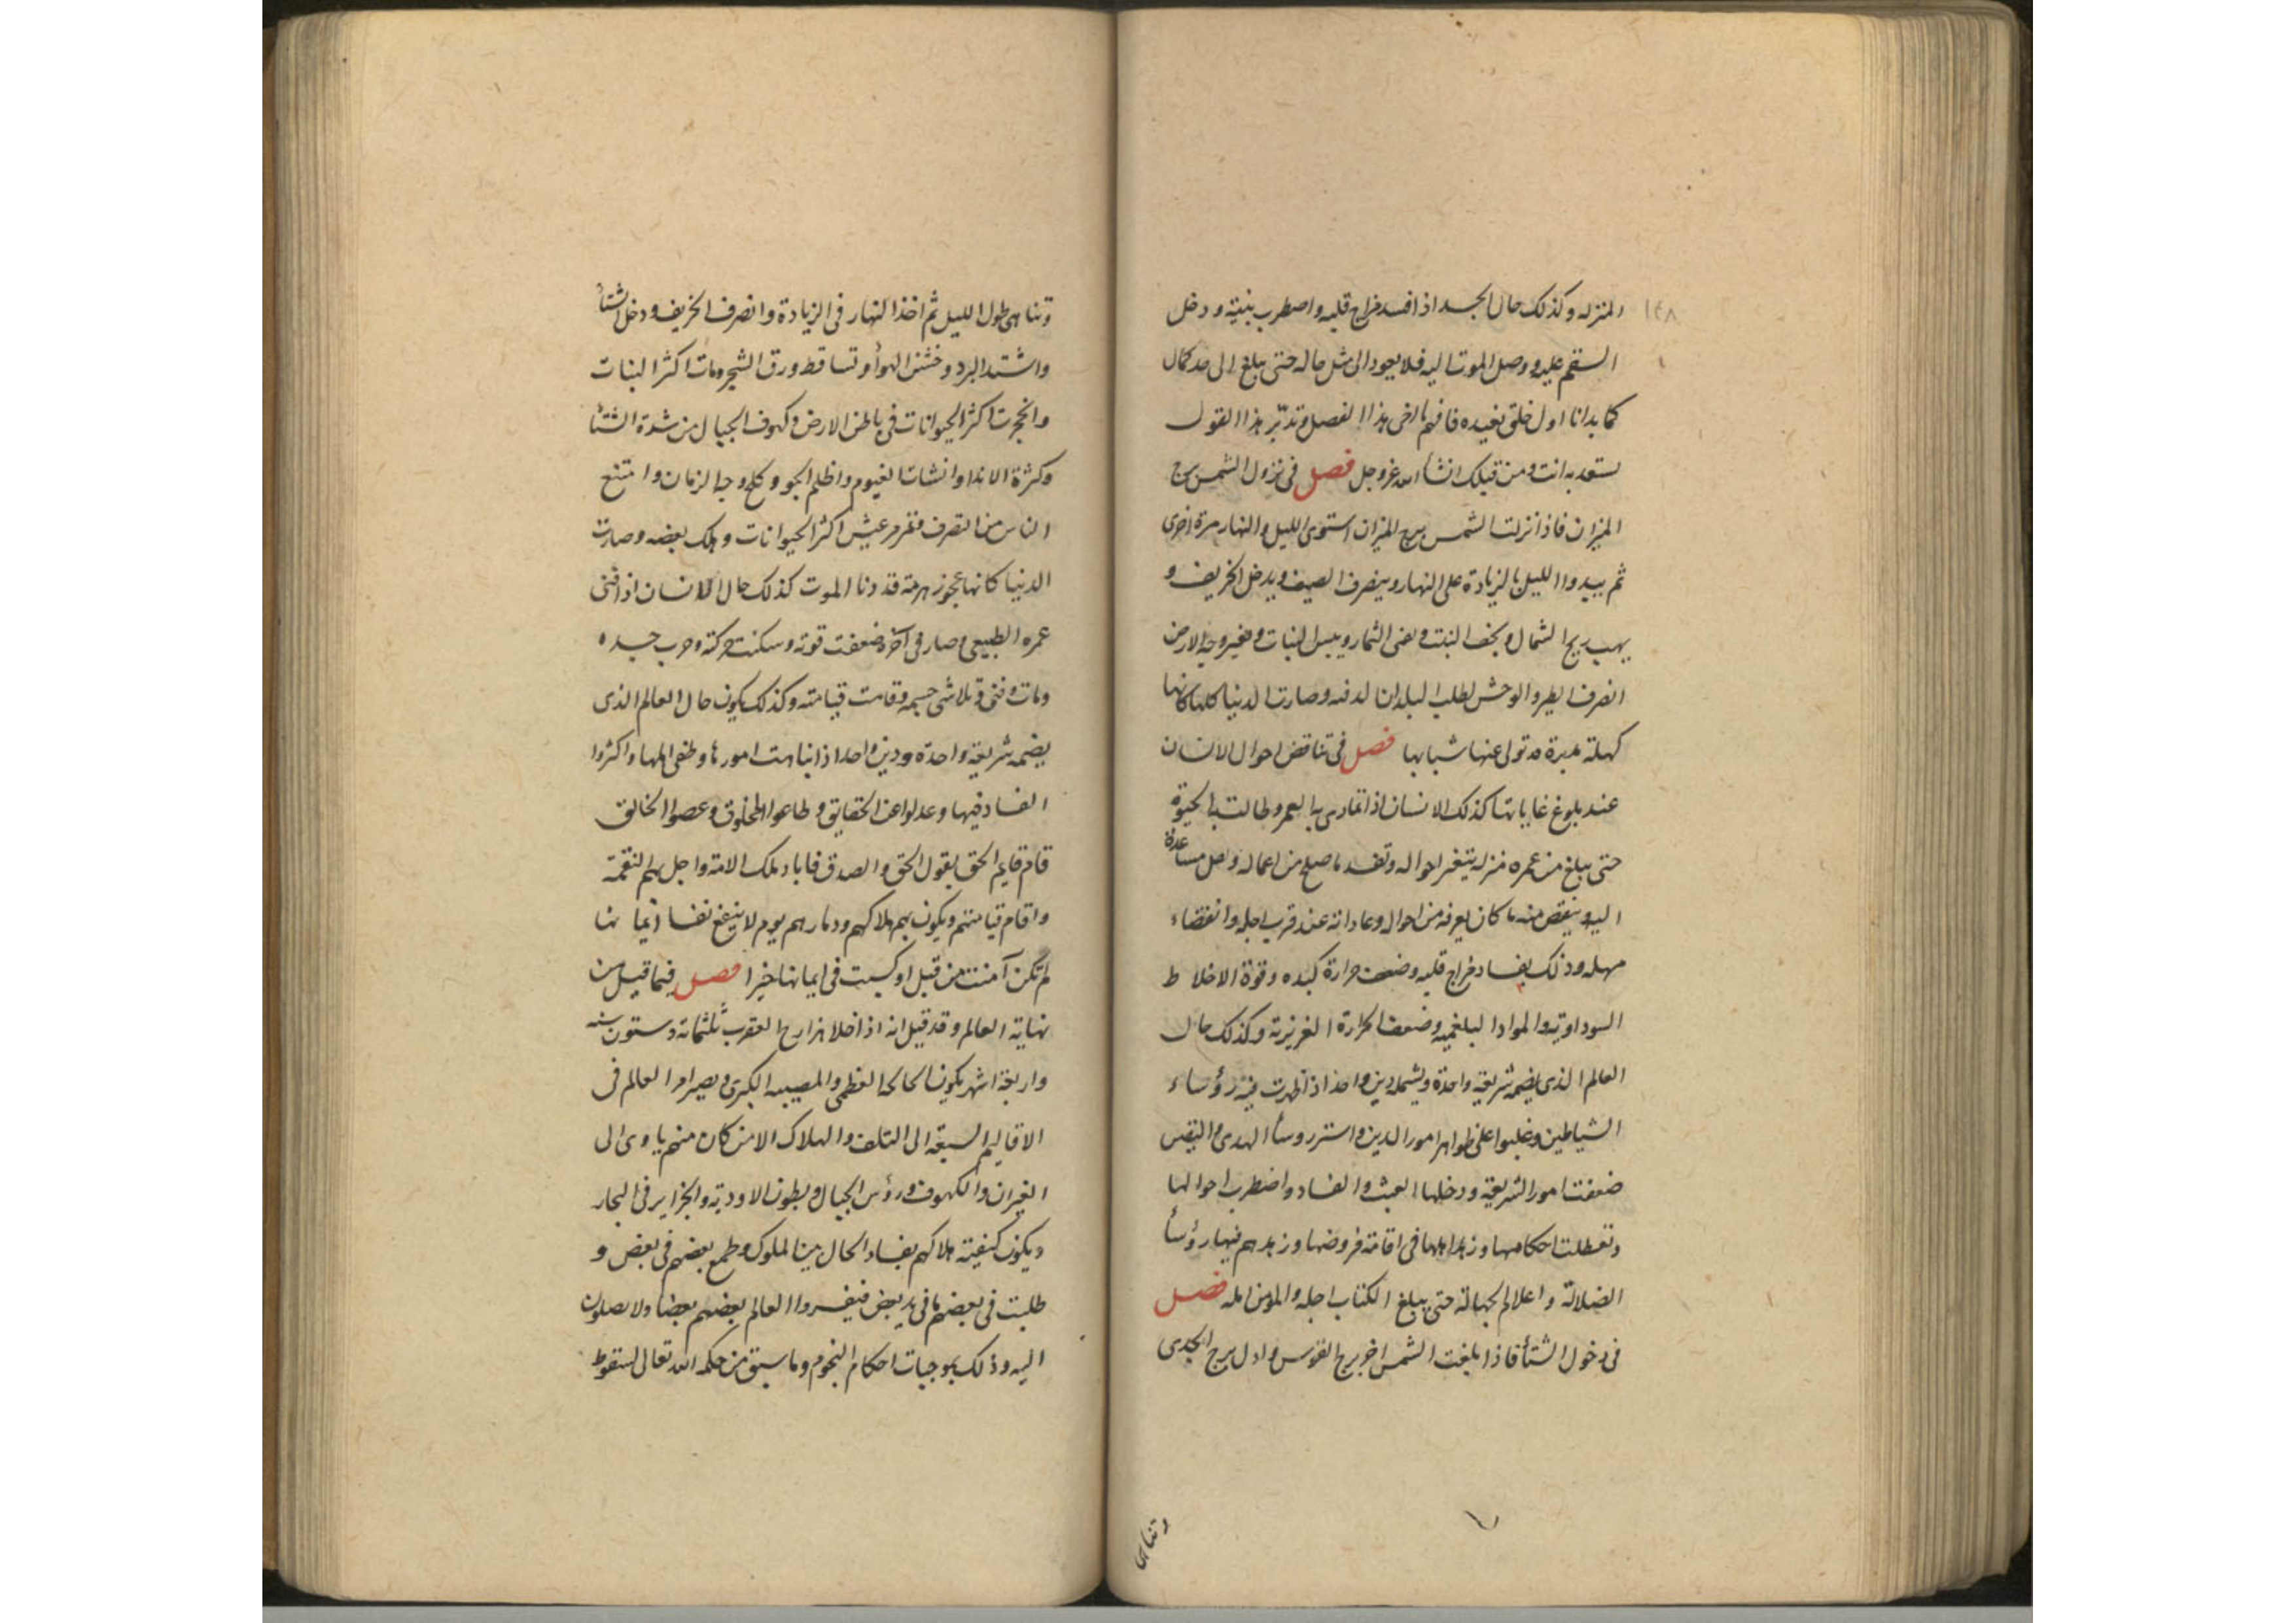 ١٤٨
المنزله وكذلك حال الجسد اذا فسد مزاج قلبه واضطرب بنيته ودخل
السقم عليه ووصل الموت اليه فلا يعود الى مثل حاله حتى يبلغ الى حد كمال
كما بدانا اول خلق نعيده فافهم يا اخى هذا الفصل وتدبّر هذا القول
تستعد به انت ومن قبلك انشأ الله عزوجل فصل فى نزول الشمس برج
الميزان فاذا نزلت الشمس برج الميزان استوى الليل والنهار مرة اخرى
ثم يبدوا الليل بالزيادة على النهار وينصرف الصيف ويدخل الخريف و
يهب ريح الشمال ويجف النبت وتفنى الثمار ويبس النبات وتغير وجه الارض
انصرف الطير والوحش لطلب البلدان الدفيه وصارت الدنيا كلها كانها
كهلة مدبرة قد تولى عنها شبابها فصل فى تناقض احوال الانسان
عند بلوغ غاياتها كذلك الانسان اذا تمادى به العمر وطالت به الحيوة
حتى يبلغ من عمره منزله يتغير احواله وتفسد ما صلح من اعماله واصل مساعدة
اليه وينقص منه ما كان يعرفه من احواله وعاداته عند قرب اجله وانقضاء
مهله وذلك بفساد مزاج قلبه وضعف حرارة كبده وقوة الاخلاط
السوداوية والمواد البلغميه وضعف الحرارة الغريزية وكذلك حال
العالم الذى يضمه شريعة واحدة ويشمله دين واحد اذا ظهرت فيه رؤساء
الشياطين وغلبوا على ظواهر امور الدين واستتر روسأ الهدى واليقين
ضعفت امور الشريعة ودخلها العبث والفساد واضطرب احوالها
وتعطلت احكامها وزهد اهلها فى اقامة فروضها وزهدهم فيها رؤسأ
الضلالة واعلام الجهالة حتى يبلغ الكتاب اجله والمؤمن امله فصل
فى دخول الشتأ فاذا بلغت الشمس اخر برج القوس واول برج الجدى
وتناهى
وتناهى طول الليل ثم اخذ النهار فى الزيادة وانصرف الخريف ودخل الشتأ
واشتد البرد وخشن الهوأ وتساقط ورق الشجر ومات اكثر النبات
وانجحرت اكثر الحيوانات فى باطن الارض وكهوف الجبال من شدة الشتأ
وكثرة الاندا وانشات الغيوم واظلم الجو وكلح وجه الزمان وامتنع
الناس من التصرف وتمرمر عيش اكثر الحيوانات وهلك بعضه وصارت
الدنيا كانها عجوز هرمة قد دنا الموت كذلك حال الانسان اذا فنى
عمره الطبيعى وصار فى آخره ضعفت قوته وسكنت حركته وخرب جسده
ومات وفنى وتلاشى جسمه وقامت قيامته وكذلك يكون حال العالم الذى
يضمه شريعة واحدة ودين واحد اذا تناهت امورها وطغى اهلها واكثروا
الفساد فيها وعدلوا عن الحقايق وطاعوا المخلوق وعصوا الخالق
قام قايم الحق بقول الحق والصدق فاباد تلك الامة واحل بهم النقمة
واقام قيامتهم ويكون بهم هلاكهم ودمارهم يوم لا ينفع نفسا ايمانها
لم تكن آمنت من قبل او كسبت فى ايمانها خيرا فصل فيما قيل من
نهاية العالم وقد قيل انه اذا خلا من تاريخ العقرب ثلثماته وستون سنه
واربعة اشهر يكون الحالحه العظمى والمصيبه الكبرى ويصير امر العالم فى
الاقاليم السبعة الى التلف والهلاك الا من كان منهم ياوى الى
الغيران والكهوف ورؤس الجبال وبطون الاودية والجزاير فى البحار
ويكون كيفية هلاكهم بفساد الحال بين الملوك وطمع بعضهم فى بعض و
طلبت فى بعضهم ما فى يد بعض فيفسدوا العالم بعضهم بعضا ولا يصلون
اليه وذلك بموجبات احكام النجوم وما سبق من حكمه الله تعالى لسقوط